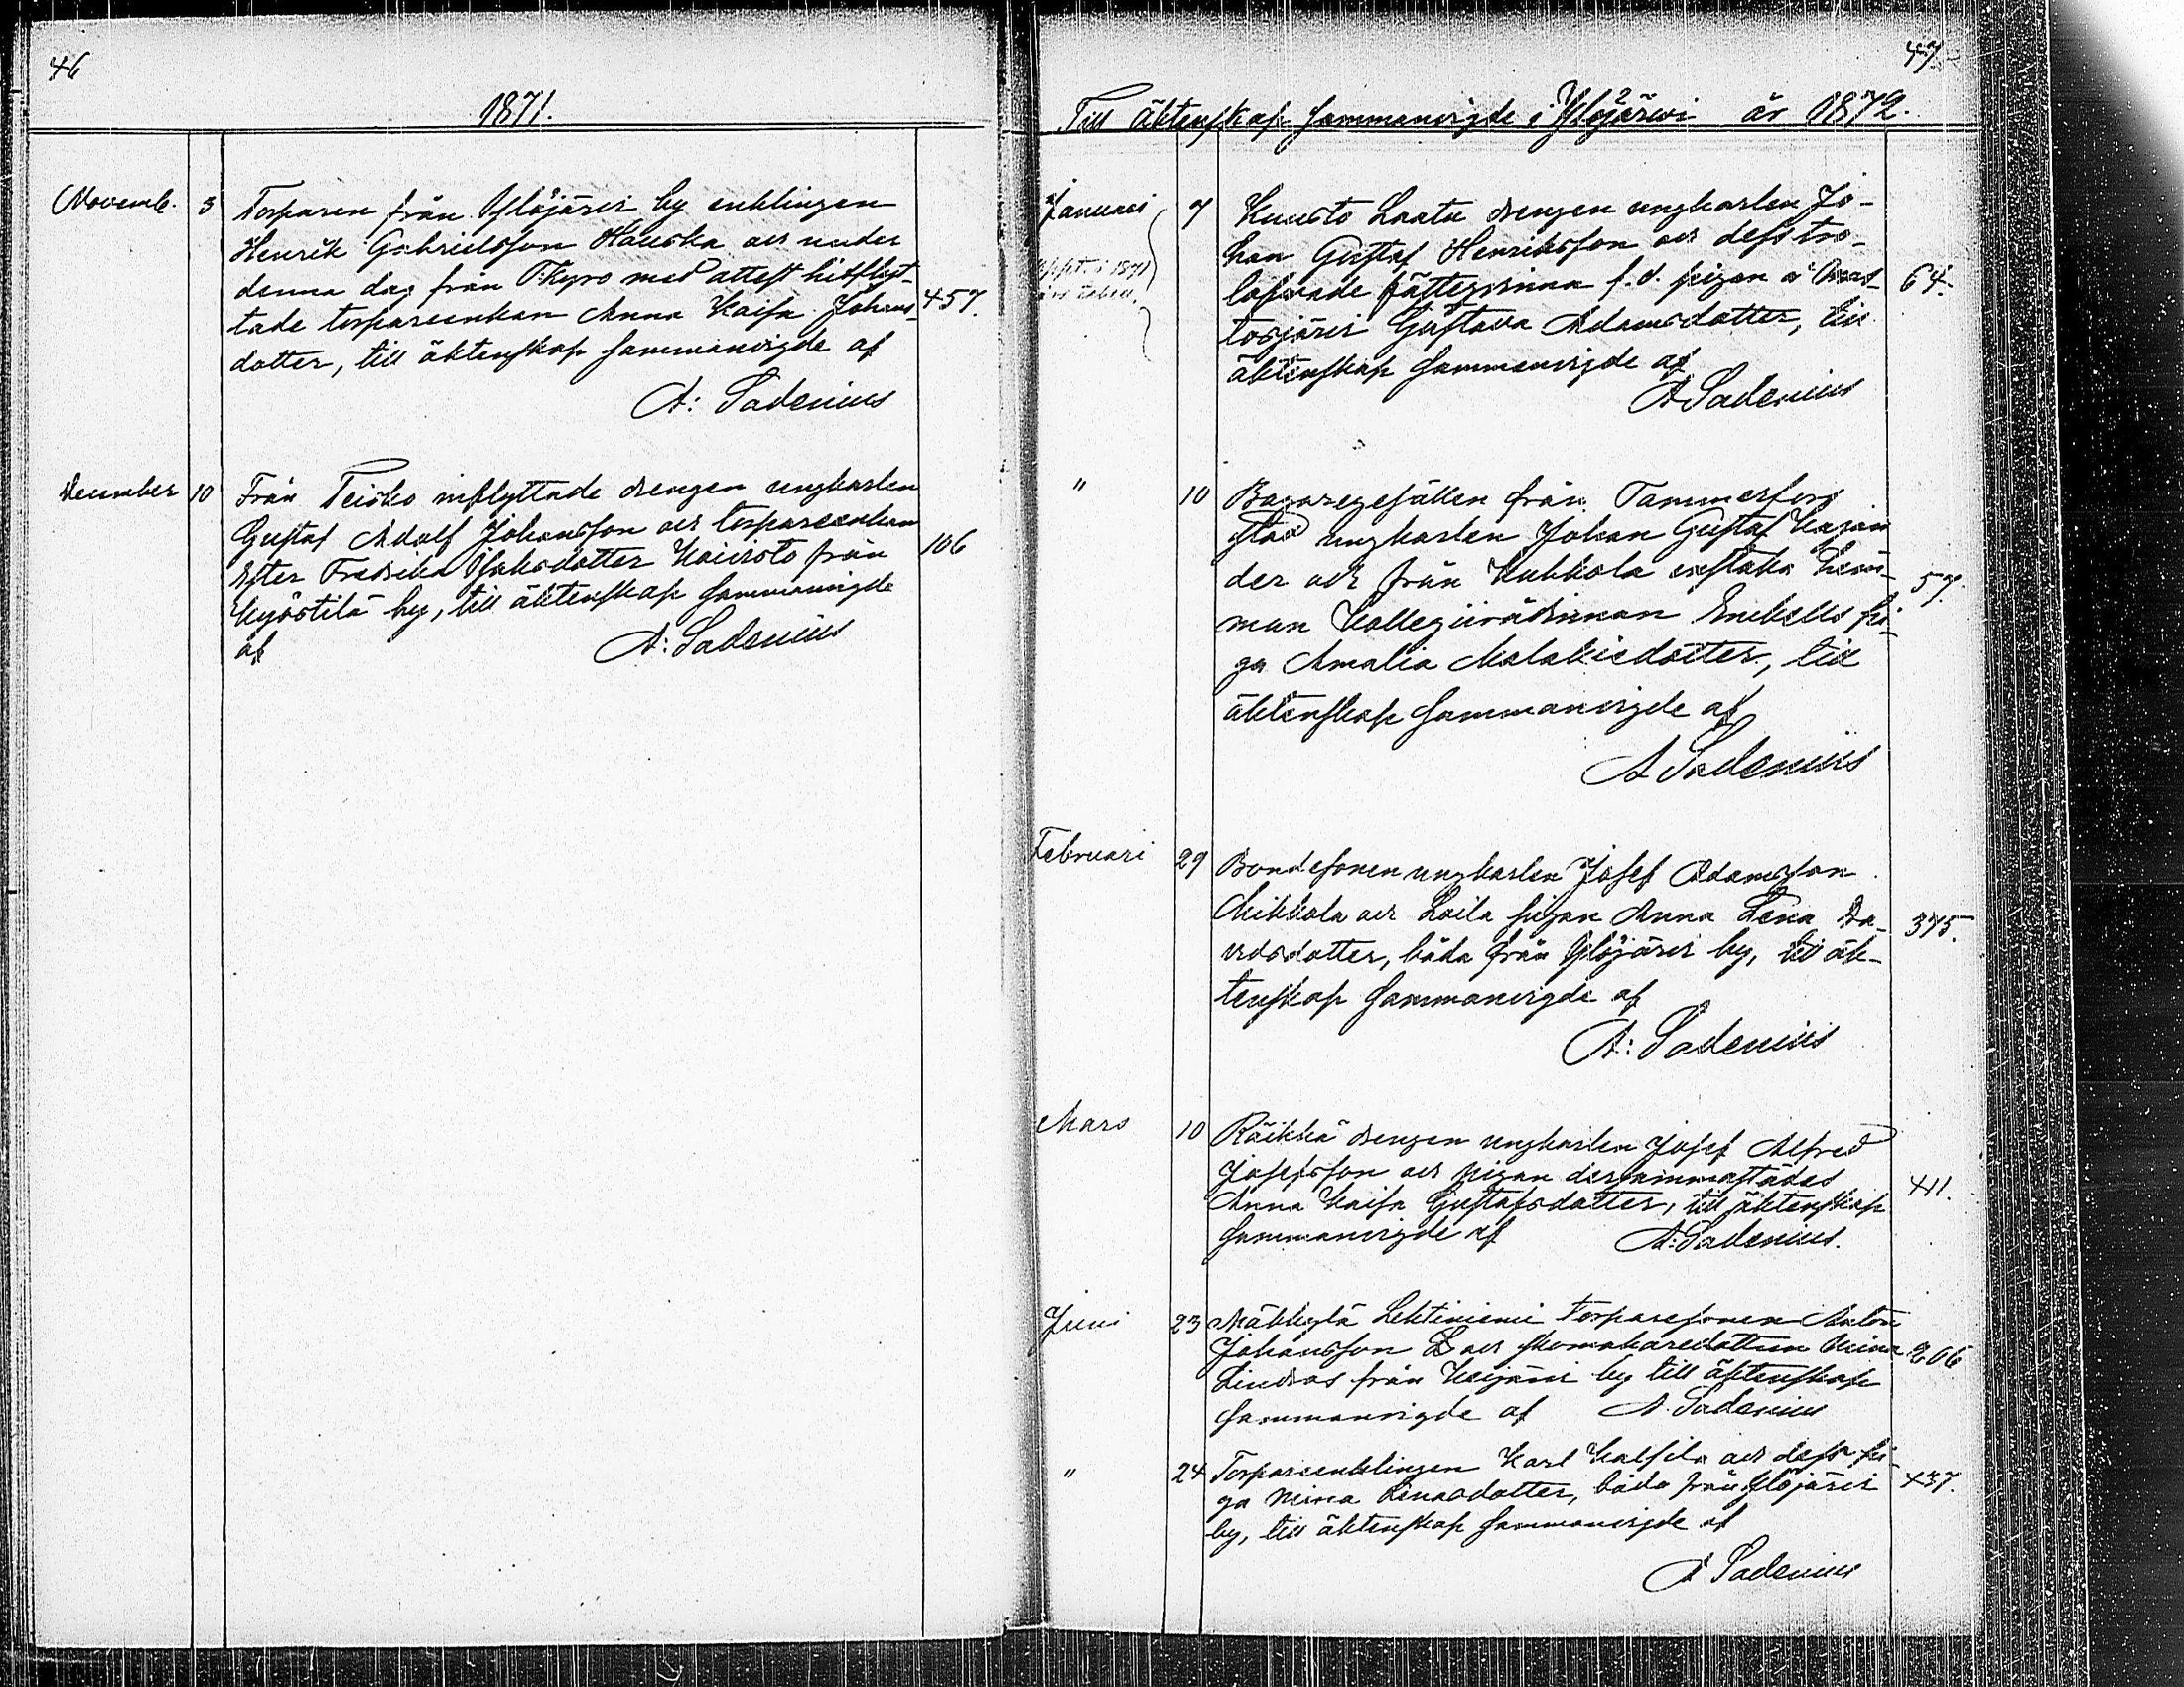 46
1871.
Novemb. 3 Torparen från Ylöjärvi by enklingen
Henrik Gabrielsson Hauska och under
denna dag från T:kyro med attest hitflyt-
tade torpareenkan Anna Kaisa Johans- 457.
dotter, till äktenskap sammanvigde af
A: Sadenius
December 10 Från Teisko inflyttade drengen ungkarlen
Gustaf Adolf Johansson och torpareenkan
Ester Fredrika Isaksdotter Koivisto från 106
Kyöstilä by, till äktenskap sammanvigde
af A: Sadenius
47
Till äktenskap sammanvigde i Ylöjärvi år 1872.
Januari 7 Kuusto Laatu drengen ungkarlen Jo-
han Gustaf Henriksson och dess tro-
lofvade fästeqvinna f.d. pigan å 64.
Gustava Adamsdotter, till
äktenskap sammanvigde af
A Sadenius
" 10 Bagaregesällen från Tammerfors
stad ungkarlen Johan Gustaf Kajan
der och från Kukkola
man Kollegiirådinnan Enebells pi- 57.
ga Amalia Malakiedotter, till
äktenskap sammanvigde af
A Sadenius
Februari 29 Bondesonen ungkarlen Josef Adamsson
Mikkola och Loila pigan Anna Lena Da- 375.
vidsdotter, båda från Ylöjärvi by, till äk-
tenskap sammanvigde af
A: Sadenius
Mars 10 Räikkä drengen ungkarlen Josef Alfred
Josefsson och pigan dersammastädes
Anna Kaisa Gustafsdotter, till äktenskap 411.
sammanvigde af A: Sadenius.
Juni 23 Mäkkylä Lehtiniemi torparesonen Anton
Johansson och skomakaredottren Mina 206
Lindros från Keijärvi by till äktenskap
sammanvigde af A. Sadenius
" 24 Torpareenklingen Karl Kalsila och dess pi-
ga Mina Linasdotter, båda från Ylöjärvi 437.
by, till äktenskap sammanvigde af
A Sadenius